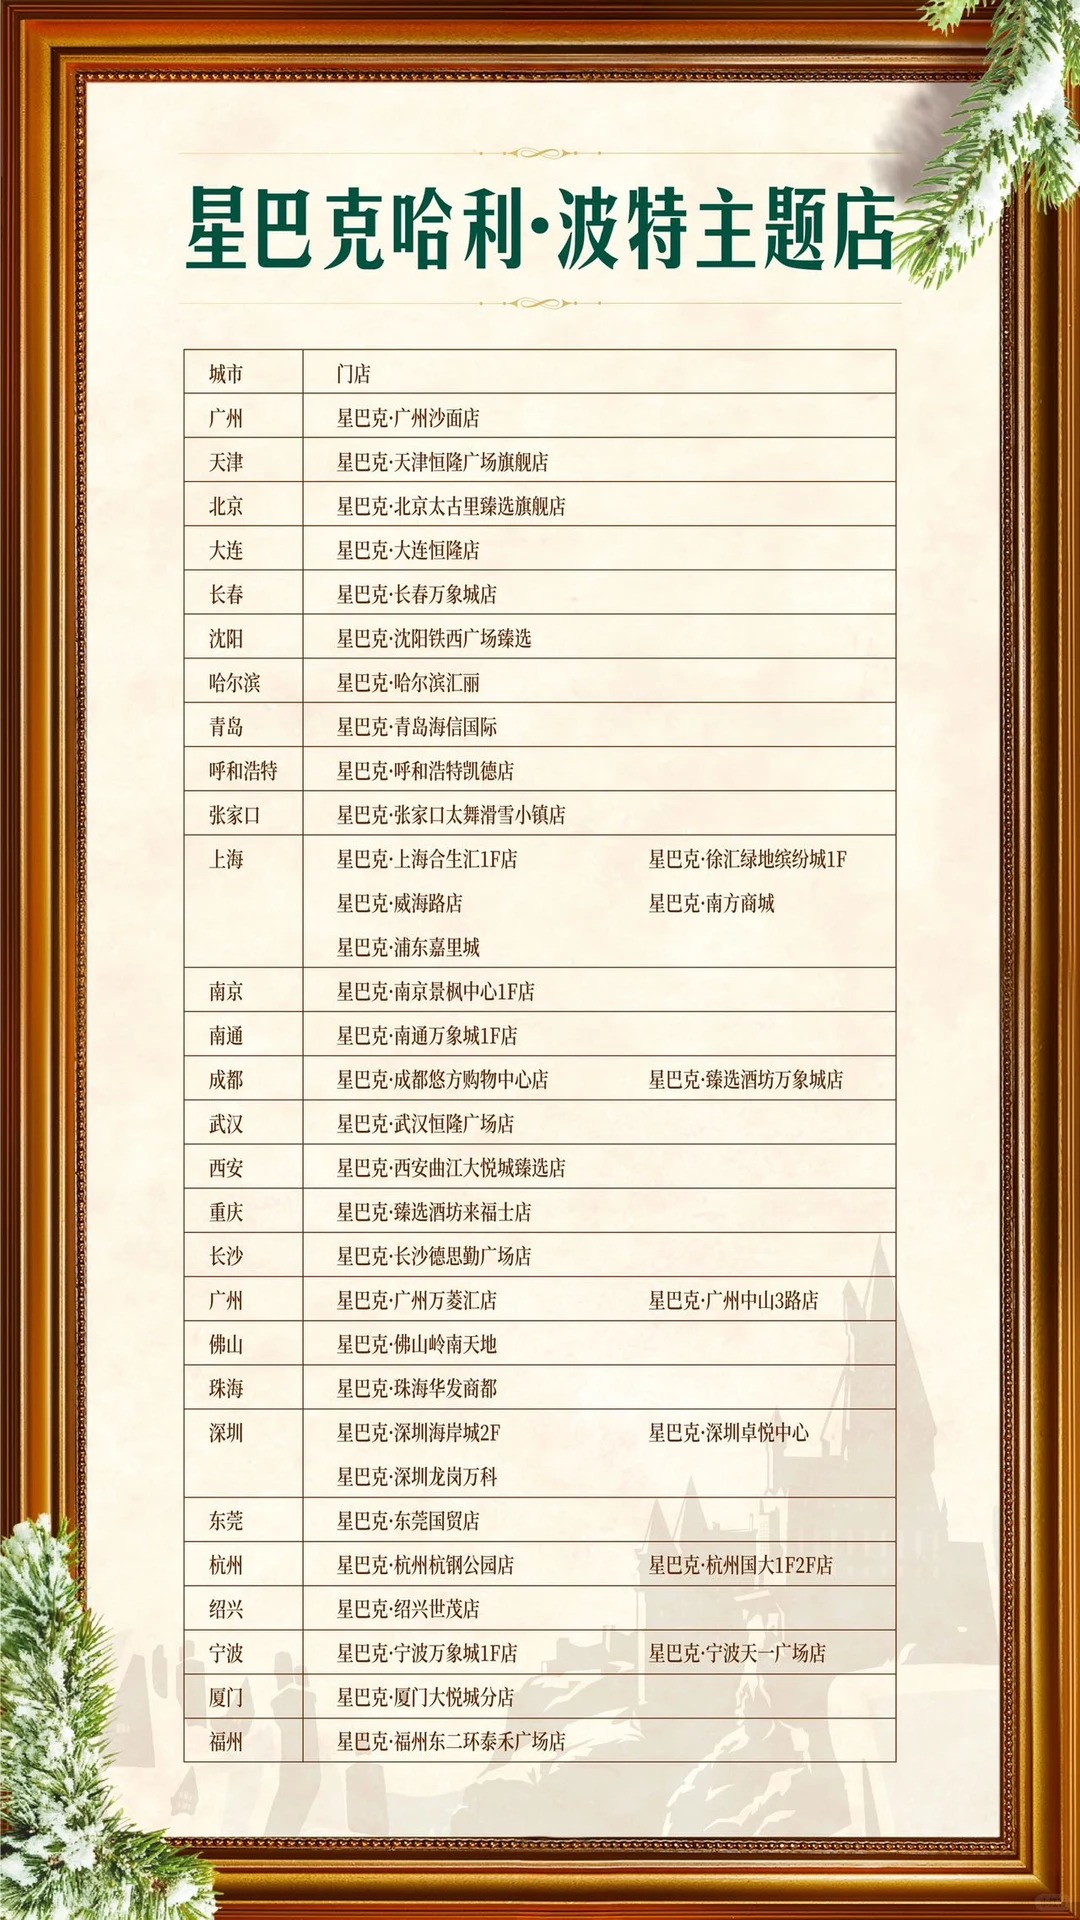 星巴克哈利·波特主题店
城市 门店
广州 星巴克·广州沙面店
天津 星巴克·天津恒隆广场旗舰店
北京 星巴克·北京太古里臻选旗舰店
大连 星巴克·大连恒隆店
长春 星巴克·长春万象城店
沈阳 星巴克·沈阳铁西广场臻选
哈尔滨 星巴克·哈尔滨汇丽
青岛 星巴克·青岛海信国际
呼和浩特 星巴克·呼和浩特凯德店
张家口 星巴克·张家口太舞滑雪小镇店
上海 星巴克·上海合生汇1F店 星巴克·徐汇绿地缤纷城1F
星巴克·威海路店 星巴克·南方商城
星巴克·浦东嘉里城
南京 星巴克·南京景枫中心1F店
南通 星巴克·南通万象城1F店
成都 星巴克·成都悠方购物中心店 星巴克·臻选酒坊万象城店
武汉 星巴克·武汉恒隆广场店
西安 星巴克·西安曲江大悦城臻选店
重庆 星巴克·臻选酒坊来福士店
长沙 星巴克·长沙德思勤广场店
广州 星巴克·广州万菱汇店 星巴克·广州中山3路店
佛山 星巴克·佛山岭南天地
珠海 星巴克·珠海华发商都
深圳 星巴克·深圳海岸城2F 星巴克·深圳卓悦中心
星巴克·深圳龙岗万科
东莞 星巴克·东莞国贸店
杭州 星巴克·杭州杭钢公园店 星巴克·杭州国大1F2F店
绍兴 星巴克·绍兴世茂店
宁波 星巴克·宁波万象城1F店 星巴克·宁波天一广场店
厦门 星巴克·厦门大悦城分店
福州 星巴克·福州东二环泰禾广场店